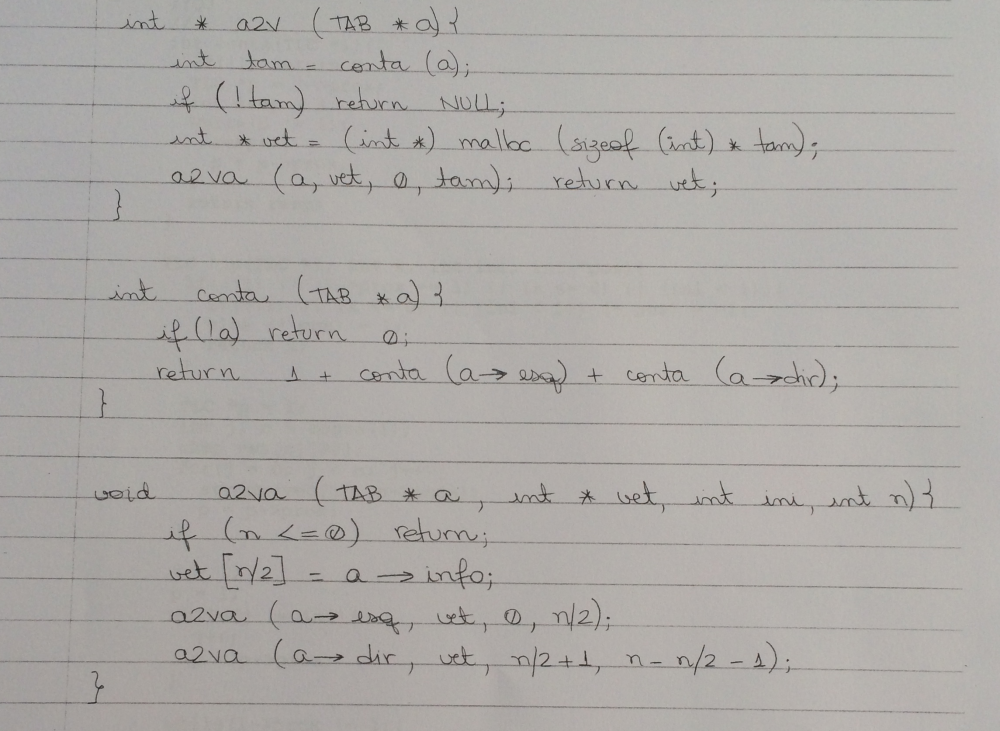 int * a2v (TAB * a){
int tam = conta (a);
if (!tam) return NULL;
int * vet = (int *) malloc (sizeof (int) * tam);
a2va (a, vet, 0, tam); return vet;
}
int conta (TAB * a){
if (!a) return 0;
return 1 + conta (a→esq) + conta (a→dir);
}
void a2va (TAB * a, int * vet, int ini, int n){
if (n <= 0) return;
vet [n/2] = a → info;
a2va (a→ esq, vet, 0, n/2);
a2va (a→ dir, vet, n/2+1, n - n/2 - 1);
}